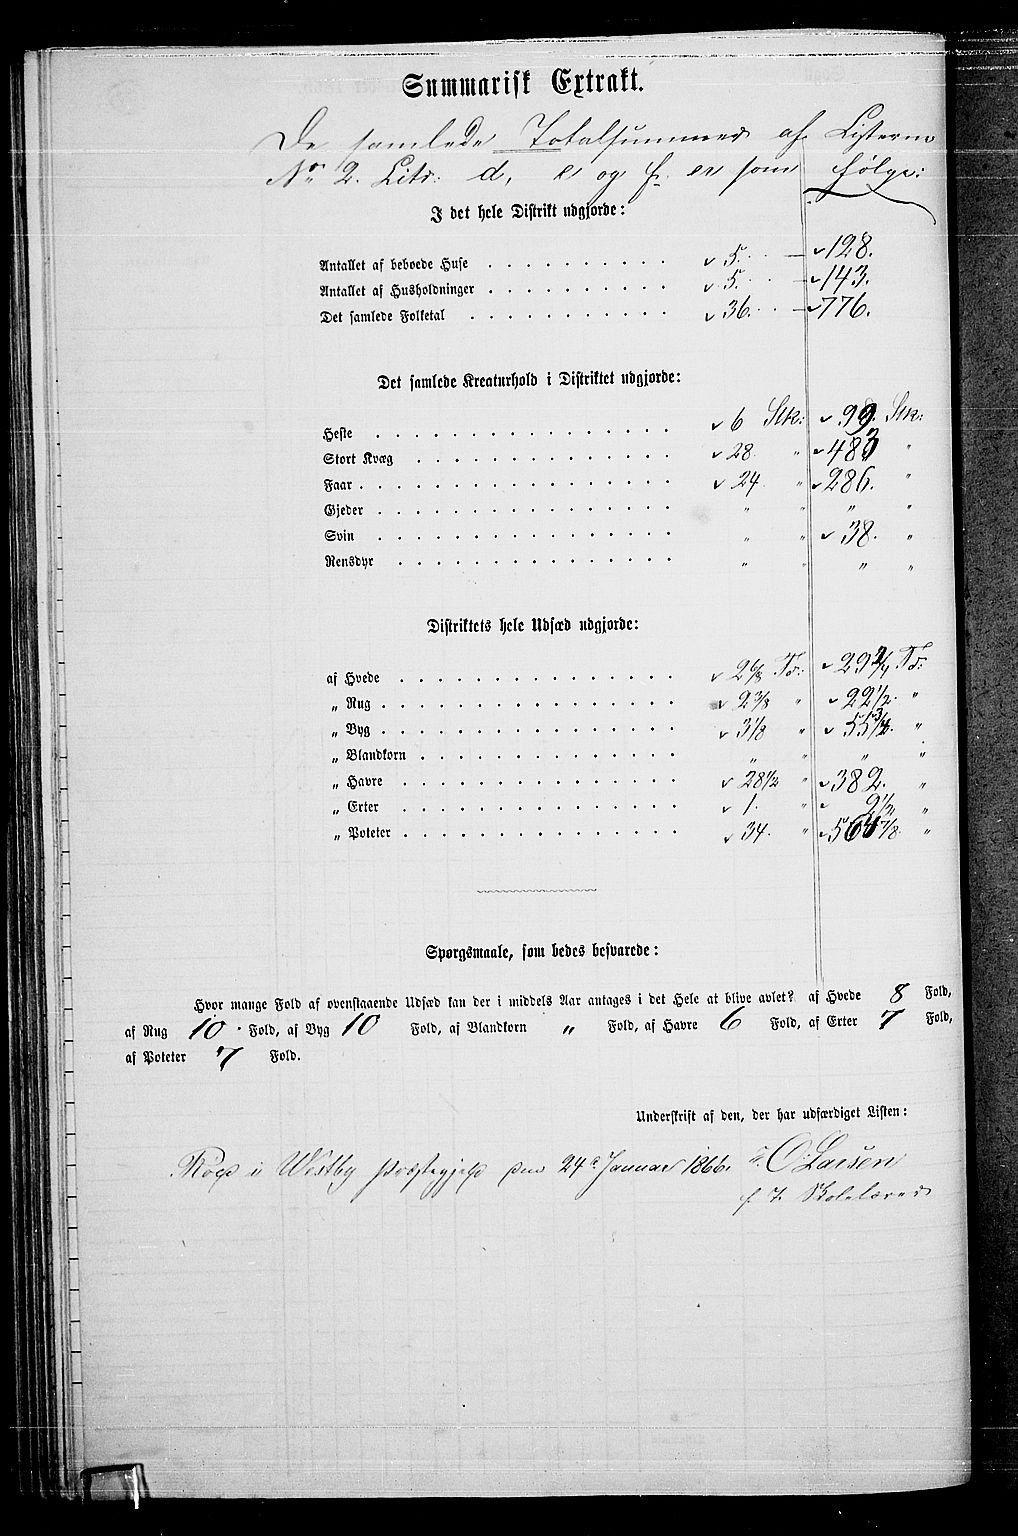 Summarisk Extrakt.
De samlede Totalsummer af Listerne
No 2. Litr: d, e og f. er som følge:
I det hele Distrikt udgjorde:
Antallet af beboede Huse . . . . . . . . . . 5. — 128.
Antallet af Husholdninger . . . . . . . . . . 5. — 143.
Det samlede Folketal . . . . . . . . . . . 36. — 776.
Det samlede Kreaturhold i Distriktet udgjorde:
Heste . . . . . . . . . . . . . . . . 6 Stk: 99. Stk:
Stort Kvæg . . . . . . . . . . . . . . 28. " 483 "
Faar . . . . . . . . . . . . . . . . . 24. " 286. "
Gjeder . . . . . . . . . . . . . . . . " " " "
Svin . . . . . . . . . . . . . . . . " " 38. "
Rensdyr . . . . . . . . . . . . . . . " " " "
Distriktets hele Udsæd udgjorde:
af Hvede . . . . . . . . . . . . . . . 2 6/8 Td: Td:
„ Rug . . . . . . . . . . . . . . . . 2 3/8 " 22 1/2. "
„ Byg . . . . . . . . . . . . . . . . 3 1/8 " 55 3/4. "
„ Blandkorn . . . . . . . . . . . . . . " " " "
„ Havre . . . . . . . . . . . . . . . 28 1/2 " 382. "
„ Erter . . . . . . . . . . . . . . . 1. " 9 1/2 "
„ Poteter . . . . . . . . . . . . . . . 34. " 564 7/8. "
Spørgsmaale, som bedes besvarede:
Hvor mange Fold af ovenstaaende Udsæd kan der i middels Aar antages i det Hele at blive avlet? af Hvede 8 Fold,
af Rug 10. Fold, af Byg 10 Fold, af Blandkorn " Fold, af Havre 6 Fold, af Erter 7 Fold,
af Poteter 7 Fold.
Underskrift af den, der har udfærdiget Listen:
i Westby Præstegjeld den 24de Januar 1866. O. Larsen
f. T. Skolelærer